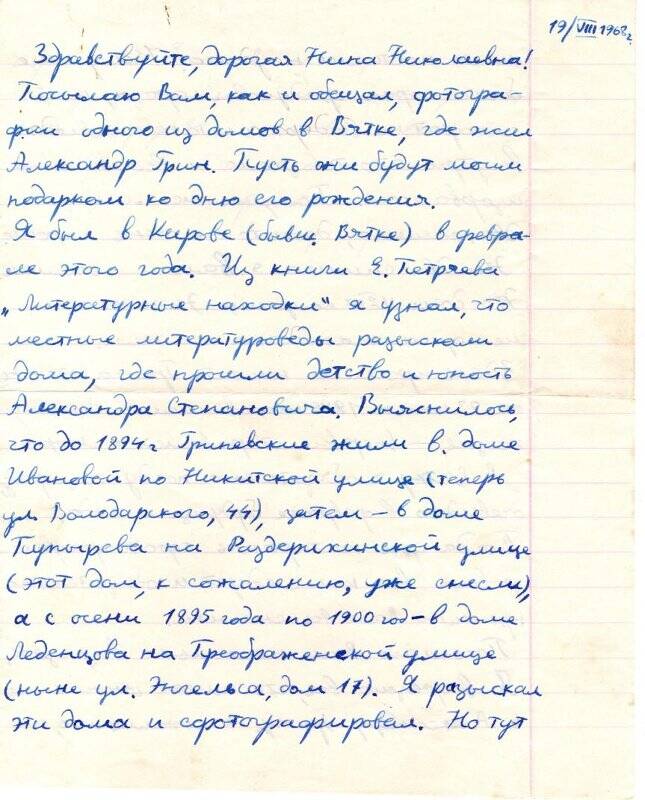 19/VIII 1968г.
Здравствуйте, дорогая Нина Николаевна!
Посылаю Вам, как и обещал, фотогра-
фии одного из домов в Вятке, где жил
Александр Грин. Пусть они будут моим
подарком ко дню его рождения.
Я был в Кирове (бывш. Вятке) в февра-
ле этого года. Из книги Е. Петряева
„Литературные находки" я узнал, что
местные литературоведы разыскали
дома, где прошли детство и юность
Александра Степановича. Выяснилось,
что до 1894г Гриневские жили в доме
Ивановой по Никитской улице (теперь
ул. Володарского, 44), затем – в доме
Пупырева на Раздерихинской улице
(этот дом, к сожалению, уже снесли),
а с осени 1895 года по 1900 год – в доме
Леденцова на Преображенской улице
(ныне ул. Энгельса, дом 17). Я разыскал
эти дома и сфотографировал. Но тут